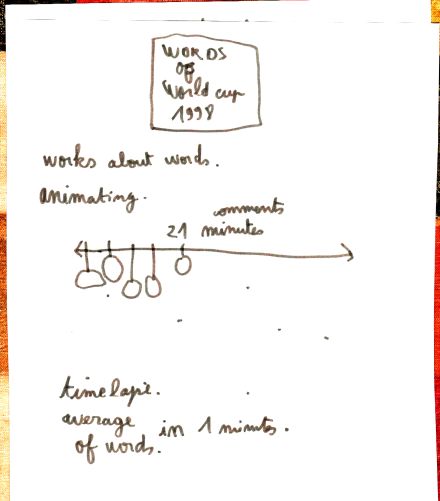 WORDS
OF
World cup
1998
works about words.
animating.
comments
21 minutes
timelapse.
average in 1 minutes.
of words.